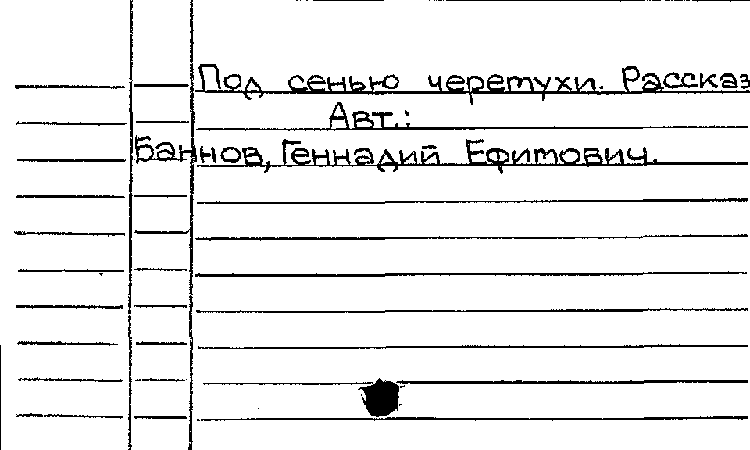 Под сенью черемухи. Рассказ
Авт.:
Баннов, Геннадий Ефимович.